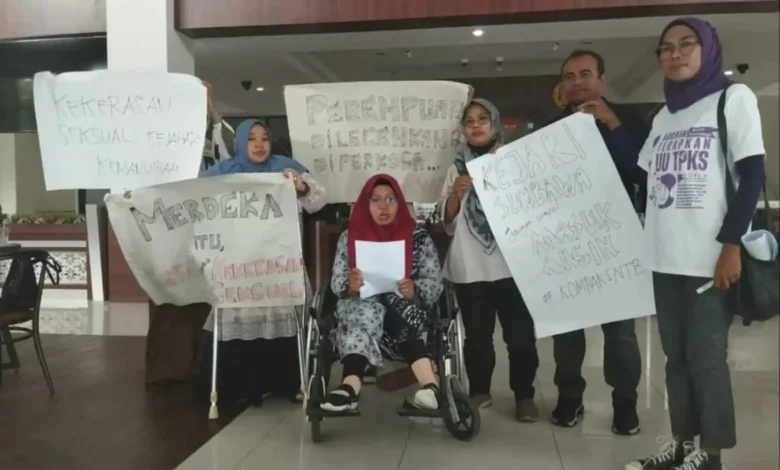 KEKERASAN
SEKSUAL KEJAHATAN
KEMANUSIAAN
PEREMPUAN
DILECEHKAN &
DIPERKOSA...
MERDEKA
ITU,
KEKERASAN
SEKSUAL
KEJARI
SUMBAWA
MASUK
ANGIN
#KOMPAKSNTB
TERAPKAN
UU TPKS